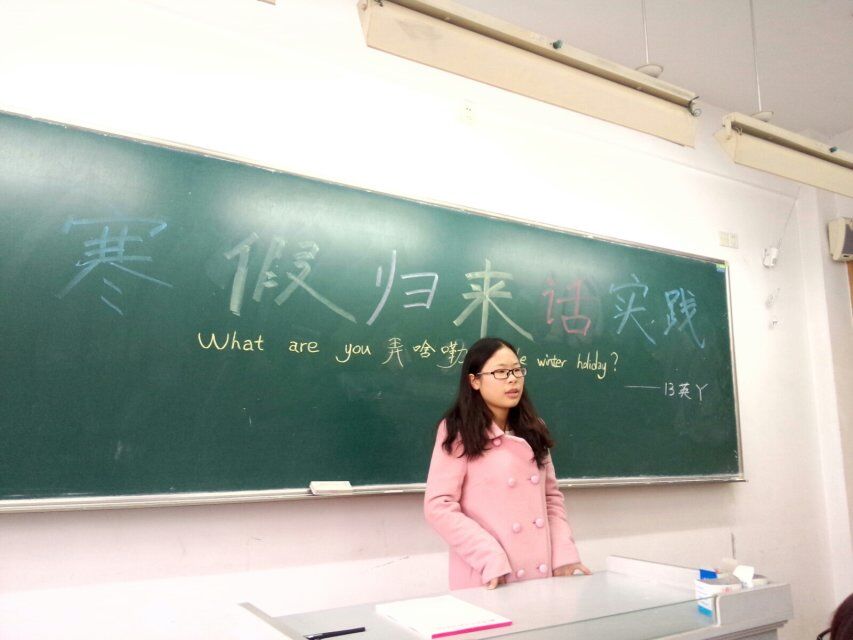 寒假归来话实践
What are you 弄啥嘞 winter holiday?
——13英丫